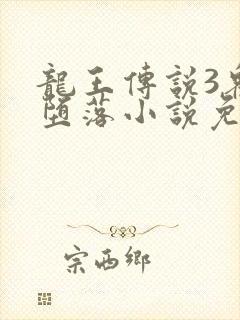 龍王傳說3
墮落小說免
宗西鄉